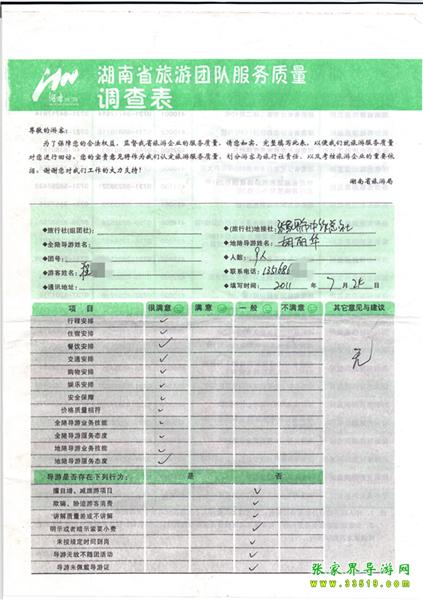 湖南省旅游团队服务质量
调查表
尊敬的游客:
为了保障您的合法权益,监督我省旅游企业的服务质量,请您如实、完整填写此表,以便我们就旅游服务质量
对您进行回访。您的宝贵意见将作为我们认定旅游服务质量、划分游客与旅行社责任、以及考核旅游企业的重要依
据。谢谢您对我们工作的大力支持!
湖南省旅游局
◆旅行社(组团社): ◆(旅行社)地接社:
◆全陪导游姓名: ◆地陪导游姓名: 胡丽华
◆团号: ◆人数: 9人
◆游客姓名: ◆联系电话: 135686
◆通讯地址: ◆填写时间: 2011 年 7 月 26 日
项 目 很满意 满 意 一 般 不 满 意 其它意见与建议
行程安排 ✓
住宿安排 ✓
餐饮安排 ✓
交通安排 ✓ 无
购物安排 ✓
娱乐安排 ✓
安全保障 ✓
价格质量相符 ✓
全陪导游业务技能 ✓
全陪导游服务态度 ✓
地陪导游业务技能 ✓
地陪导游服务态度 ✓
导游是否存在下列行为: 是 否
擅自增、减旅游项目 ✓
欺骗、胁迫游客消费 ✓
讲解质量差或不讲解 ✓
明示或者暗示索要小费 ✓
未按规定时间到岗 ✓
导游无故不随团活动 ✓
导游未佩戴导游证 ✓
张家界导游网
www.33519.com